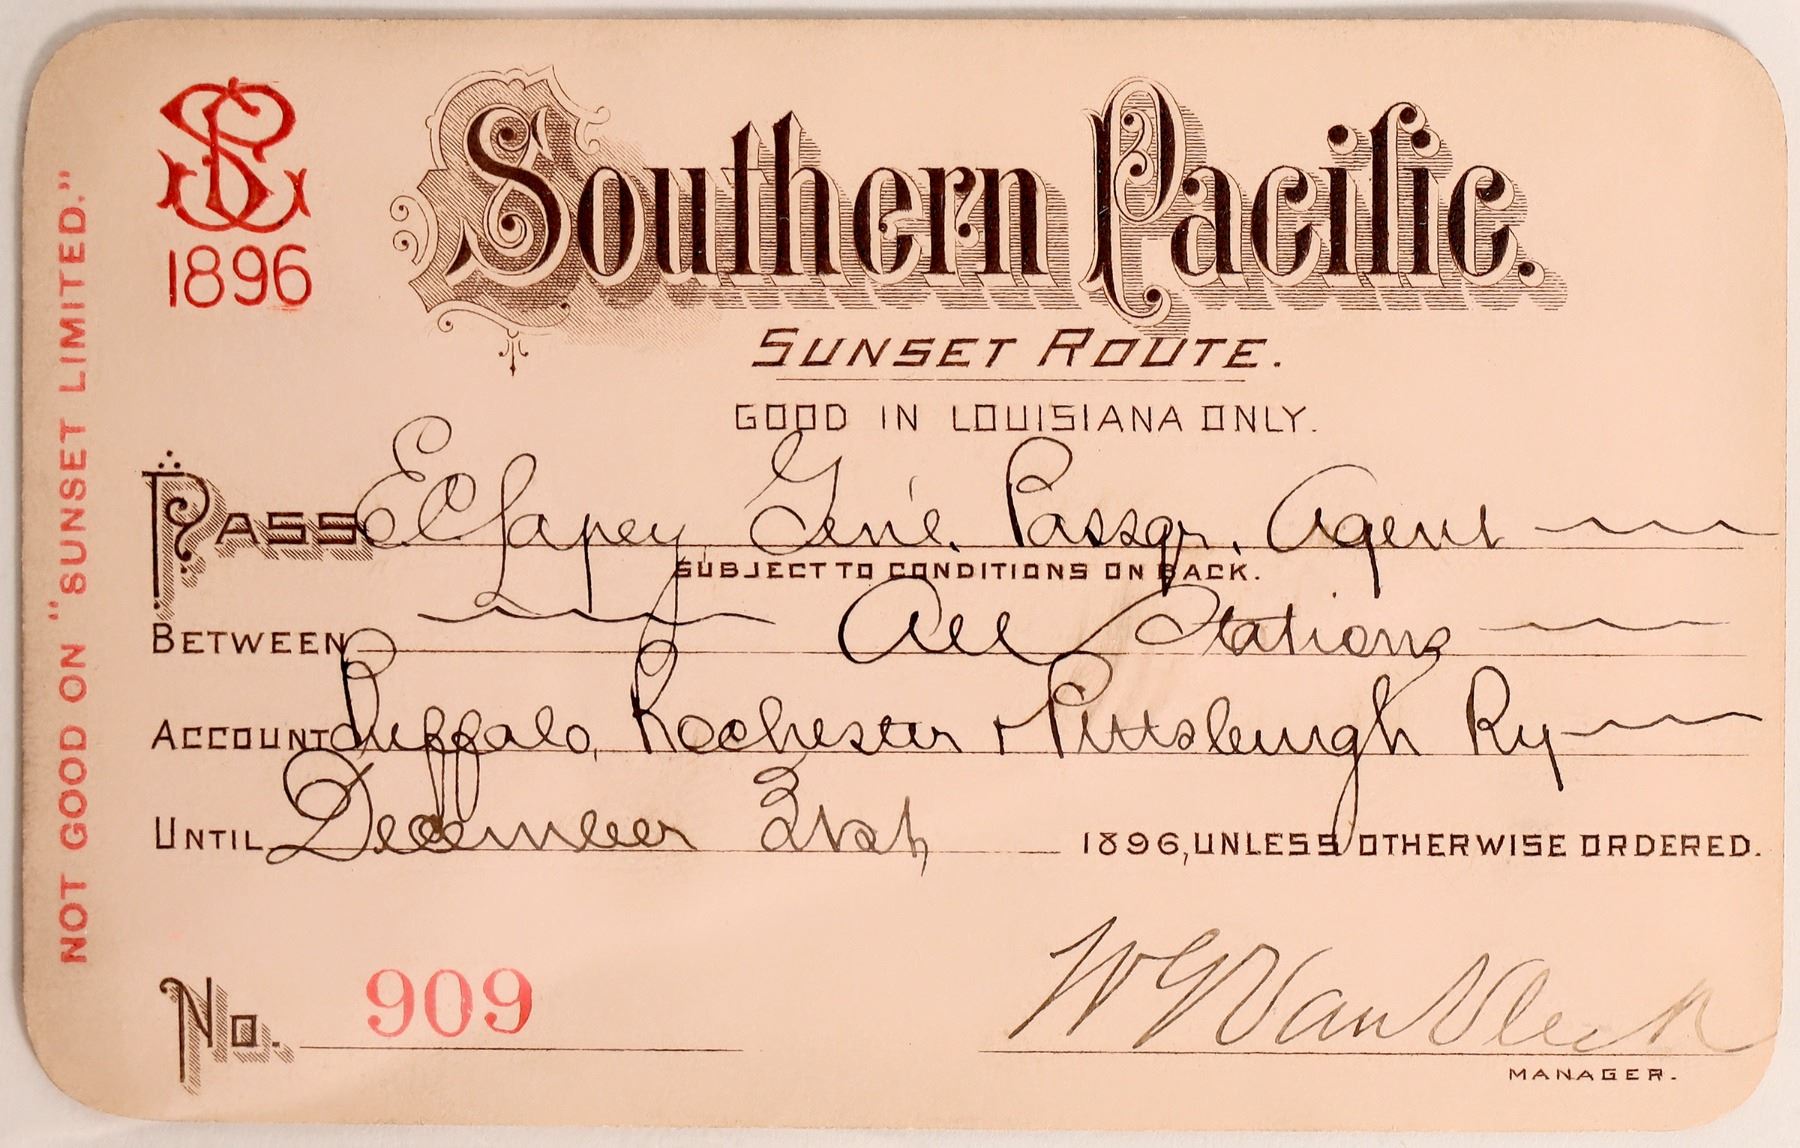 1896
Southern Pacific.
SUNSET ROUTE.
GOOD IN LOUISIANA ONLY.
PASS E C Lapey Gen'l. Passgr. Agent
SUBJECT TO CONDITIONS ON BACK.
BETWEEN All Stations
ACCOUNT Buffalo, Rochester & Pittsburgh Ry
UNTIL December 31st, 1896, UNLESS OTHERWISE ORDERED.
No. 909
W G Van Vleck
MANAGER.
NOT GOOD ON "SUNSET LIMITED."